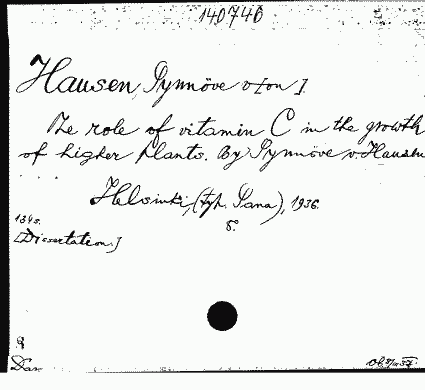 140740
Hausen, Synnöve v[on].
The role of vitamin C in the growth
of higher plants. By Synnöve v. Hausen
Helsinki, (tyk. Sana), 1936.
8.
134 s.
[Dissertation.]